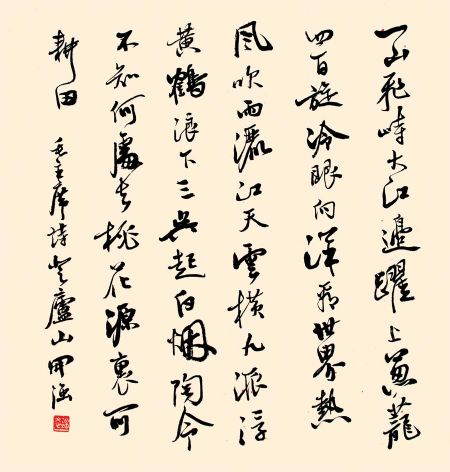 一山飛峙大江邊躍上蔥蘢
四百旋冷眼向洋看世界熱
風吹雨灑江天雲橫九派浮
黃鶴浪下三吳起白烟陶令
不知何處去桃花源裏可
耕田 毛主席詩登廬山